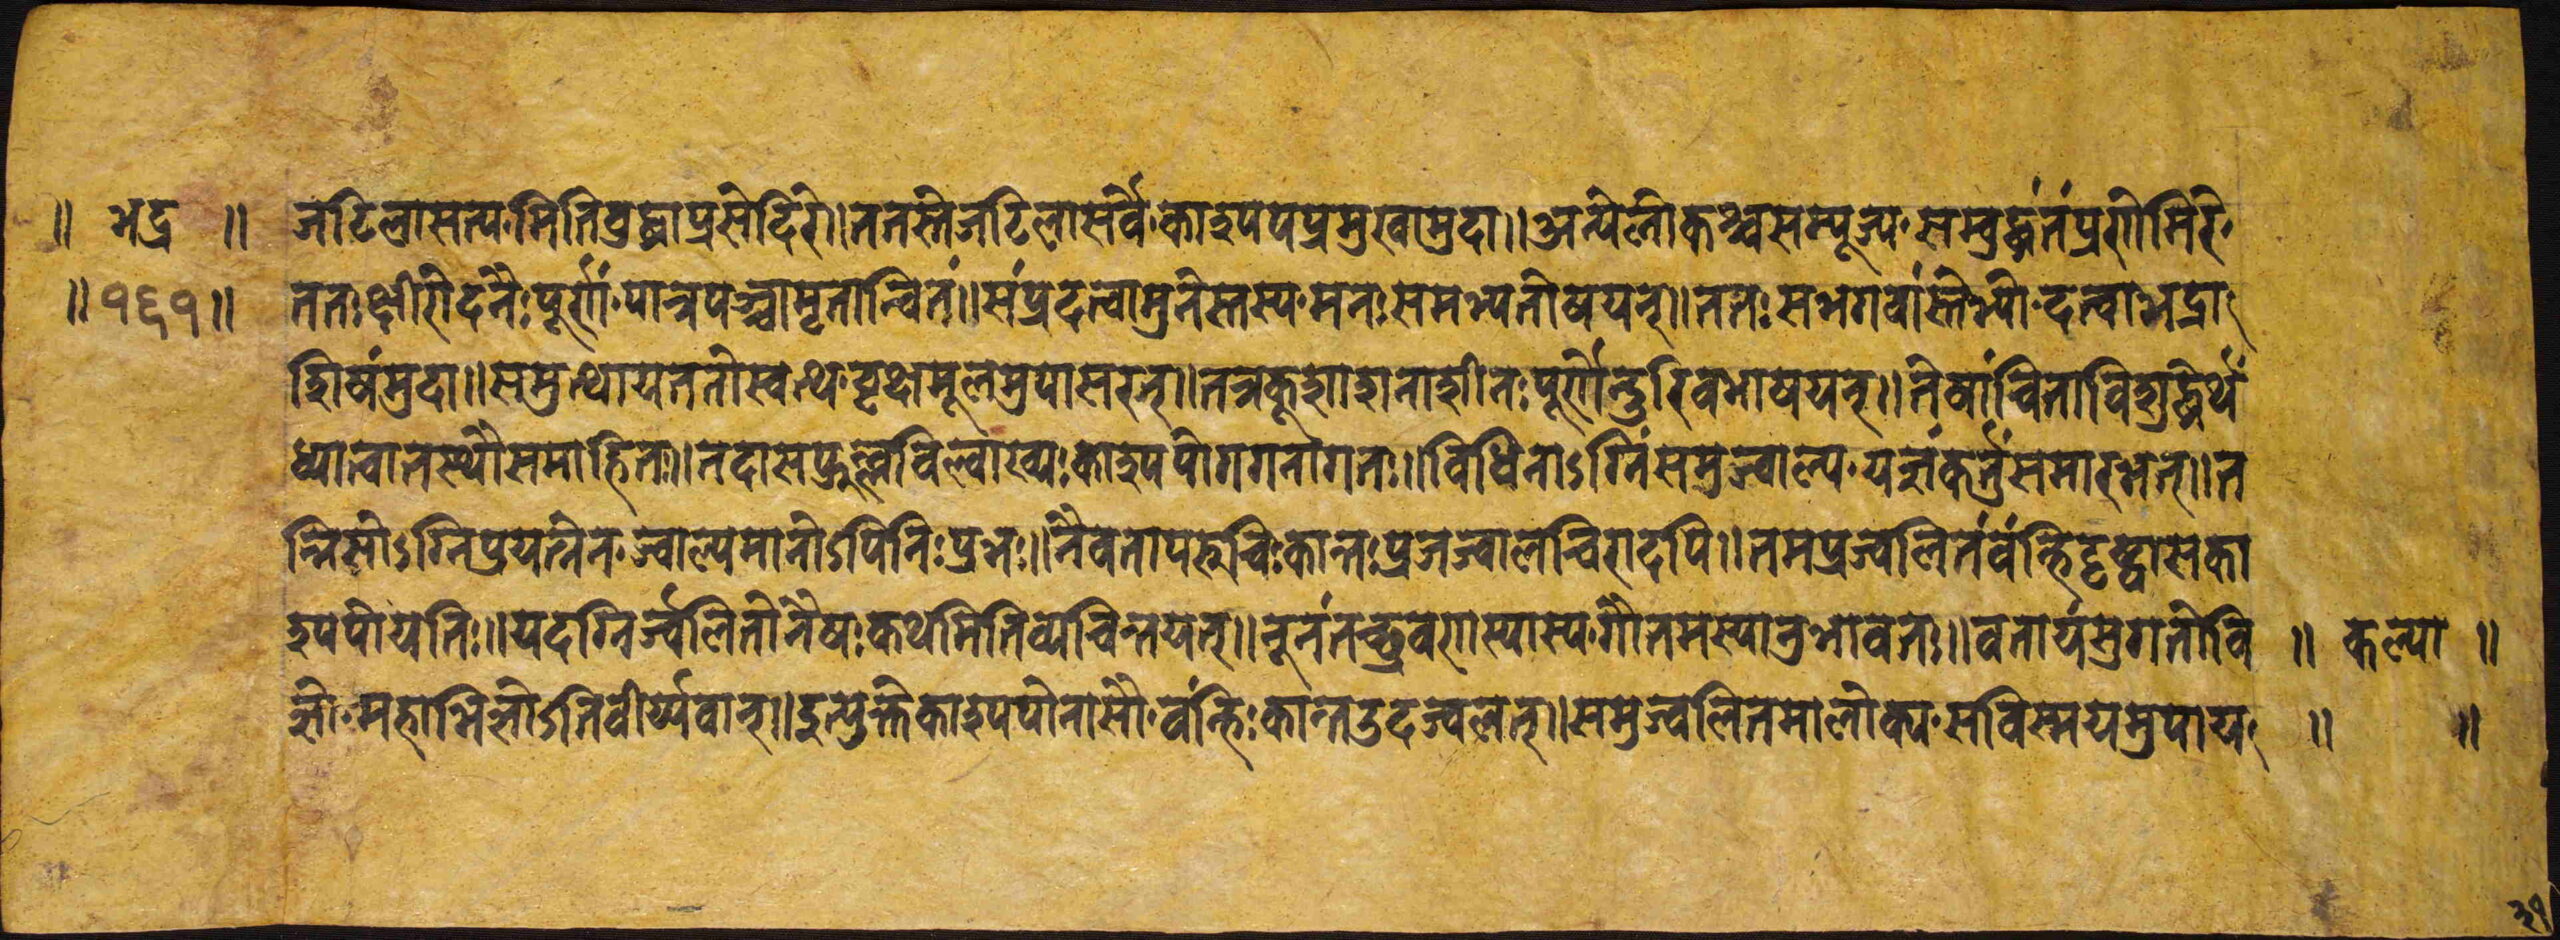 ॥ भद्र ॥ जटिलासत्य मितिबुद्धाप्रसेदिरे॥ ततस्तेजटिलासर्वे काश्यपप्रमुखामुदा॥ अन्येलोकश्चसम्पूज्य सम्बुद्धंतंप्रणेमिरे
॥ १६१ ॥ ततःक्षीरोदनैःपूर्णं पात्रपञ्चामृतान्वितं॥ संप्रदत्वामुनेस्तस्य मनःसमभ्यतोषयन्॥ ततःसभगवांस्तेभ्यो दत्वाभद्रा
शिषंमुदा॥ समुत्थायततोस्वत्थ वृक्षमूलमुपासरत्॥ तत्रकूशाशनाशीनःपूर्णेन्दुरिवभाषयन्॥ तेषांचित्तविशुद्ध्यर्थं
ध्यात्वातस्थौसमाहितः॥ तदासफुल्लविल्वाख्यःकाश्यपोगगनागतः॥ विधिनाऽग्निंसमुज्वाल्य यज्ञंकर्तुंसमारभत्॥ त
न्निसोऽग्निप्रयत्नेन ज्वाल्यमानोऽपिनिःप्रभः॥ नैवतापरुचिःकान्तःप्रजज्वालचिरादपि॥ तमप्रज्वलितंवंह्निदृष्ट्वासका
श्यपोयतिः॥ यदग्निर्ज्वलितोनैषःकथमितिव्यचिन्तयत्॥ नूनंतच्छ्रवणास्यास्य गौतमस्यानुभावतः॥ वतायंसुगतोवि ॥ कल्पा ॥
ज्ञो महाभिज्ञोऽतिवीर्य्यवान्॥ इत्युक्तेकाश्यपेनासौ वंह्निःकान्तउदज्वलत्॥ समुज्वलितमालोक्य सविस्मयमुपाय ॥ ॥
३१